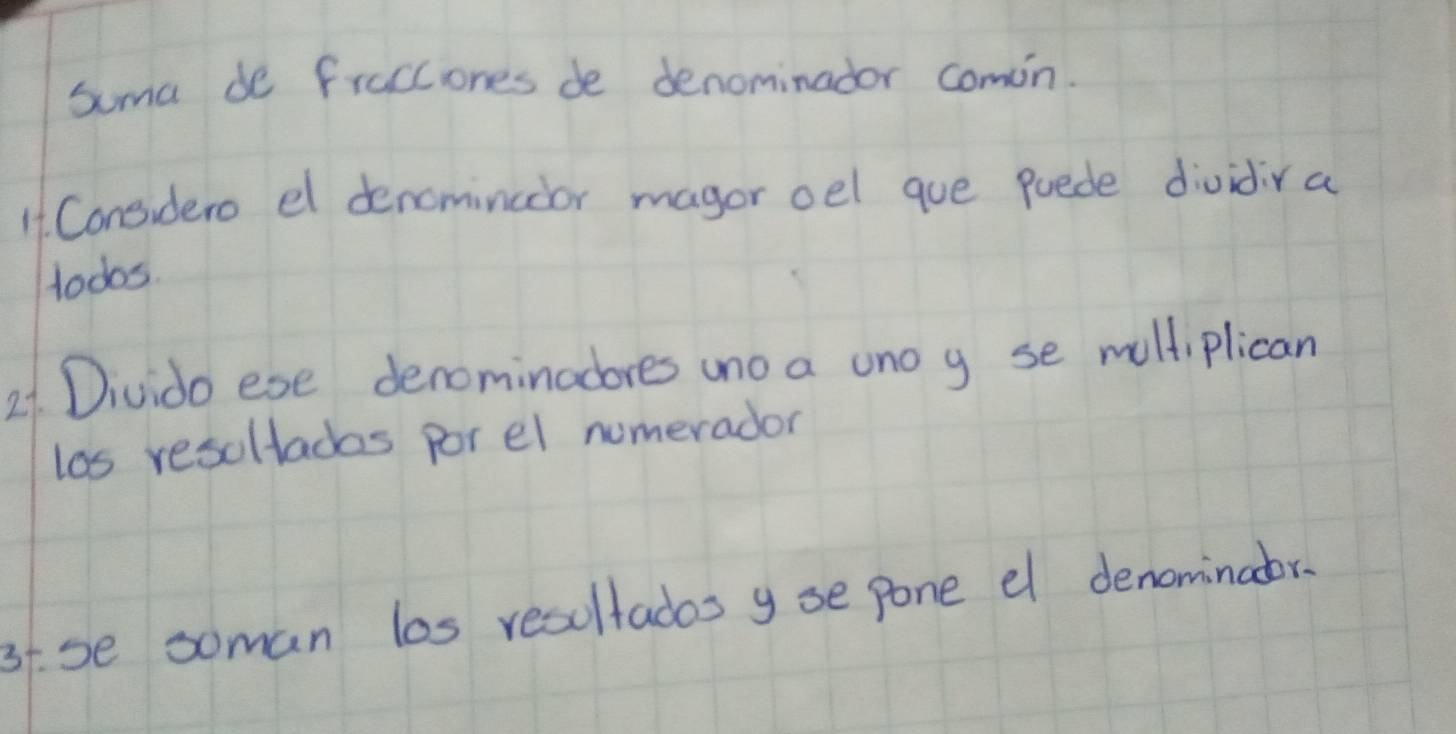 Suma de fracciones de denominador común.
1. Considero el denominador magor o el que puede dividir a
todos.
2. Divido ese denominadores uno a uno y se multiplican
los resultados por el numerador
3. se suman los resultados y se pone el denominador.